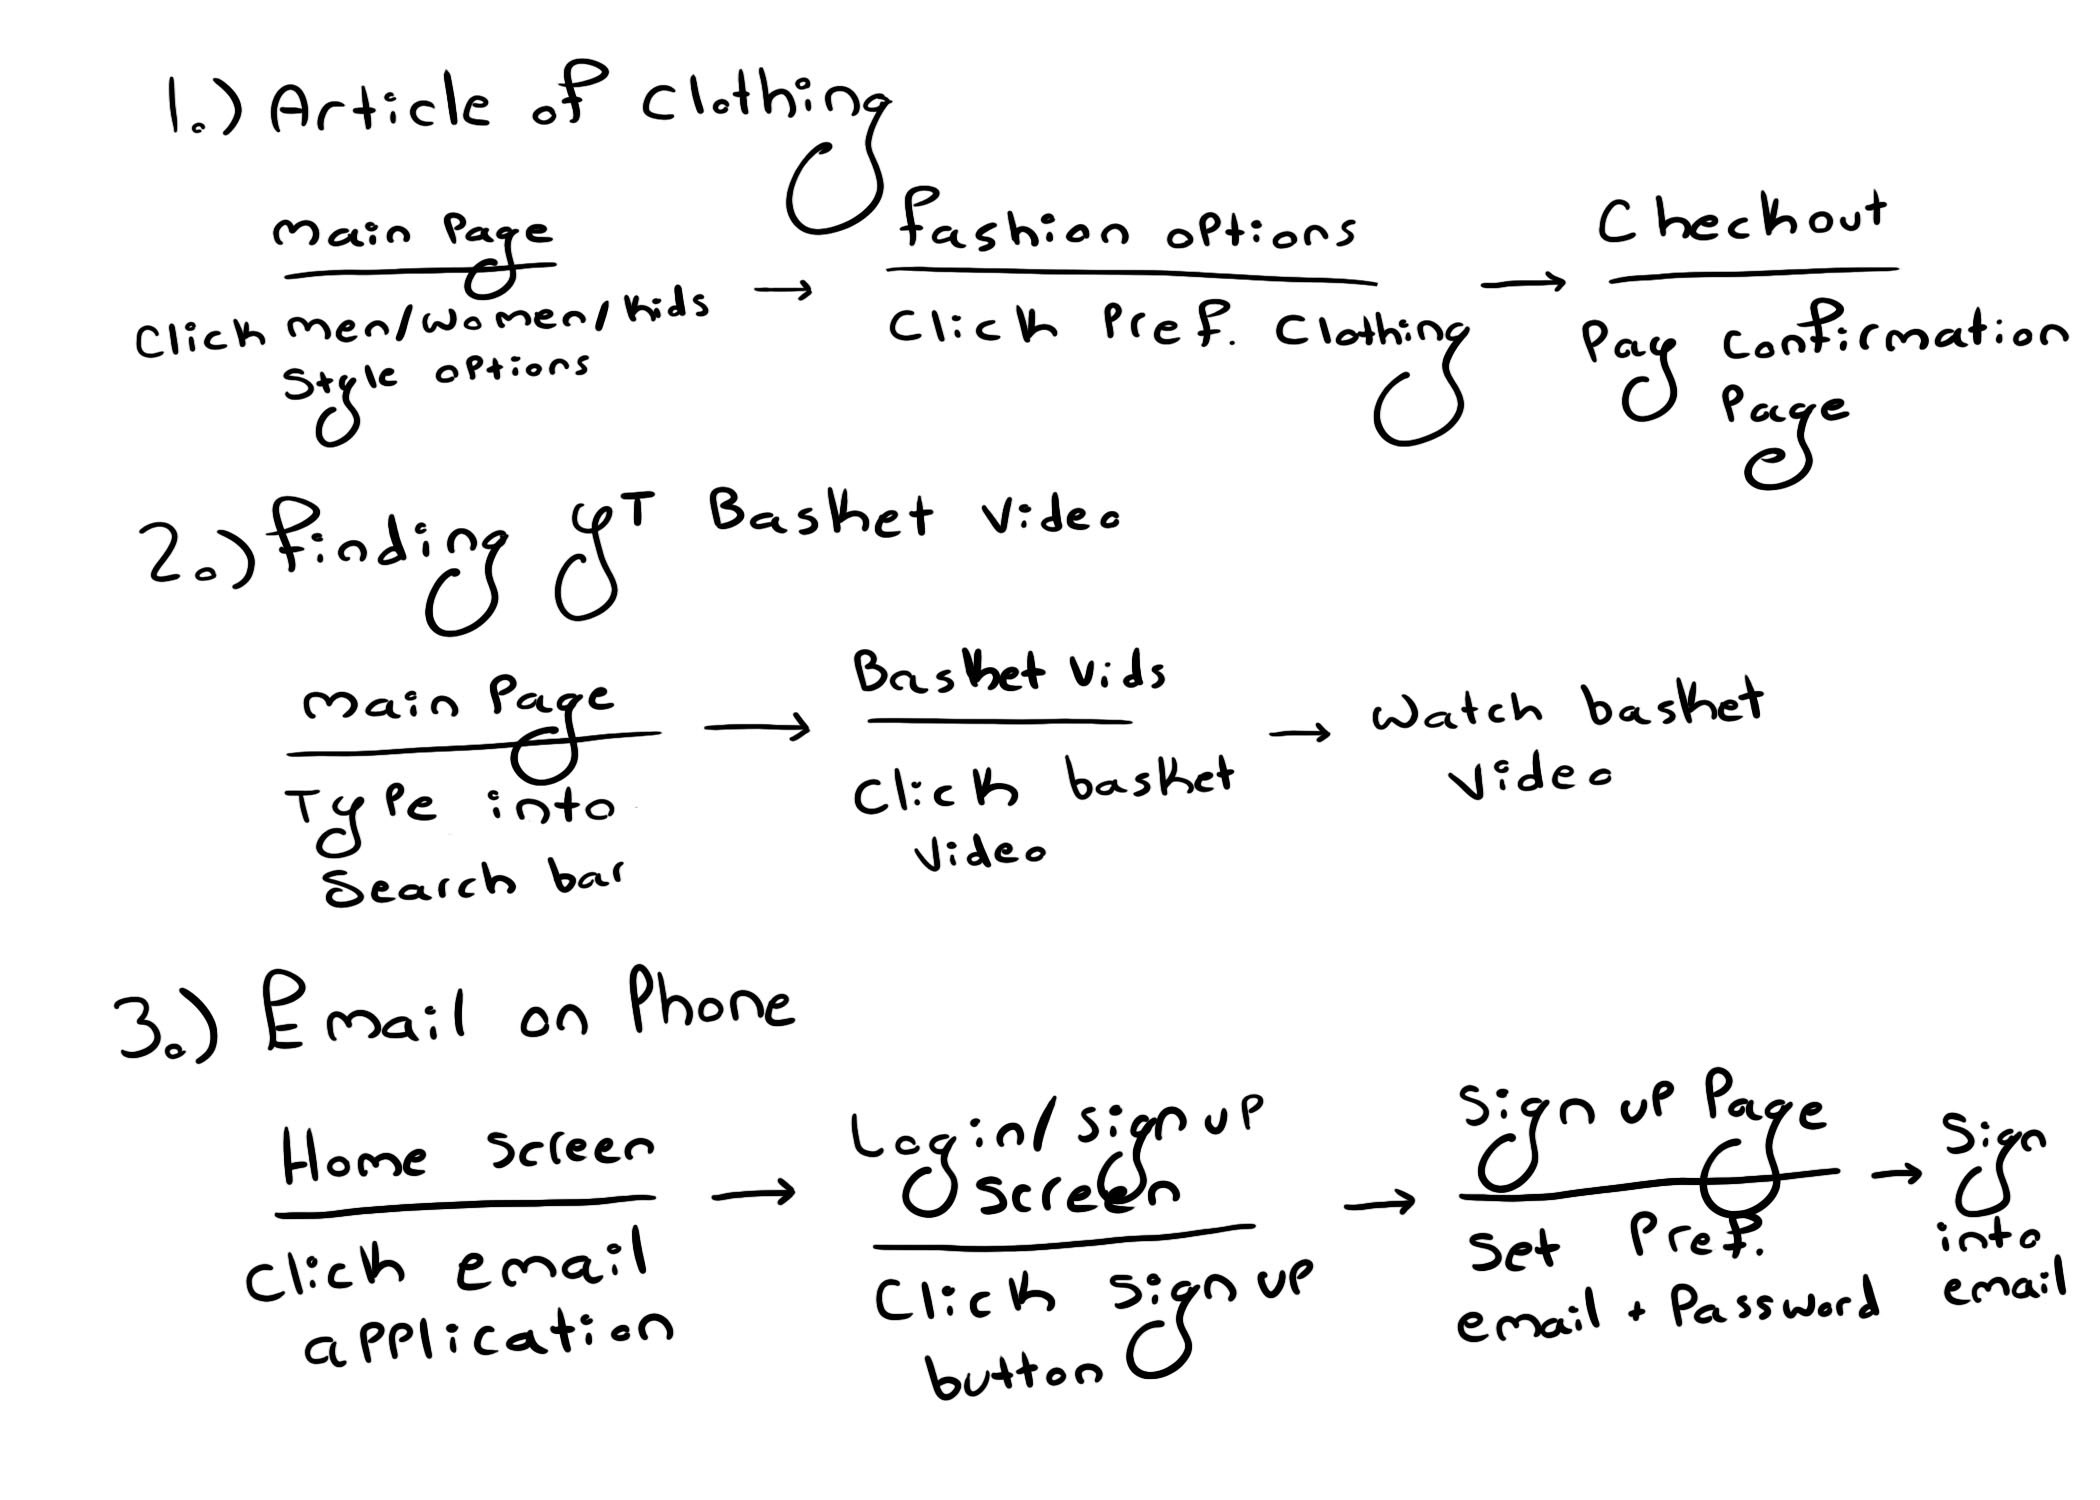 1.) Article of clothing
Main Page
Click men/women/kids
Style options
→
fashion options
Click Pref. Clothing
→
Checkout
Pay confirmation
Page
2.) finding YT Basket video
Main Page
Type into
Search bar
→
Basket vids
Click basket
video
→
Watch basket
video
3.) Email on Phone
Home screen
Click email
application
→
Login/sign up
screen
Click sign up
button
→
Sign up Page
Set Pref.
email + Password
→
Sign
into
email